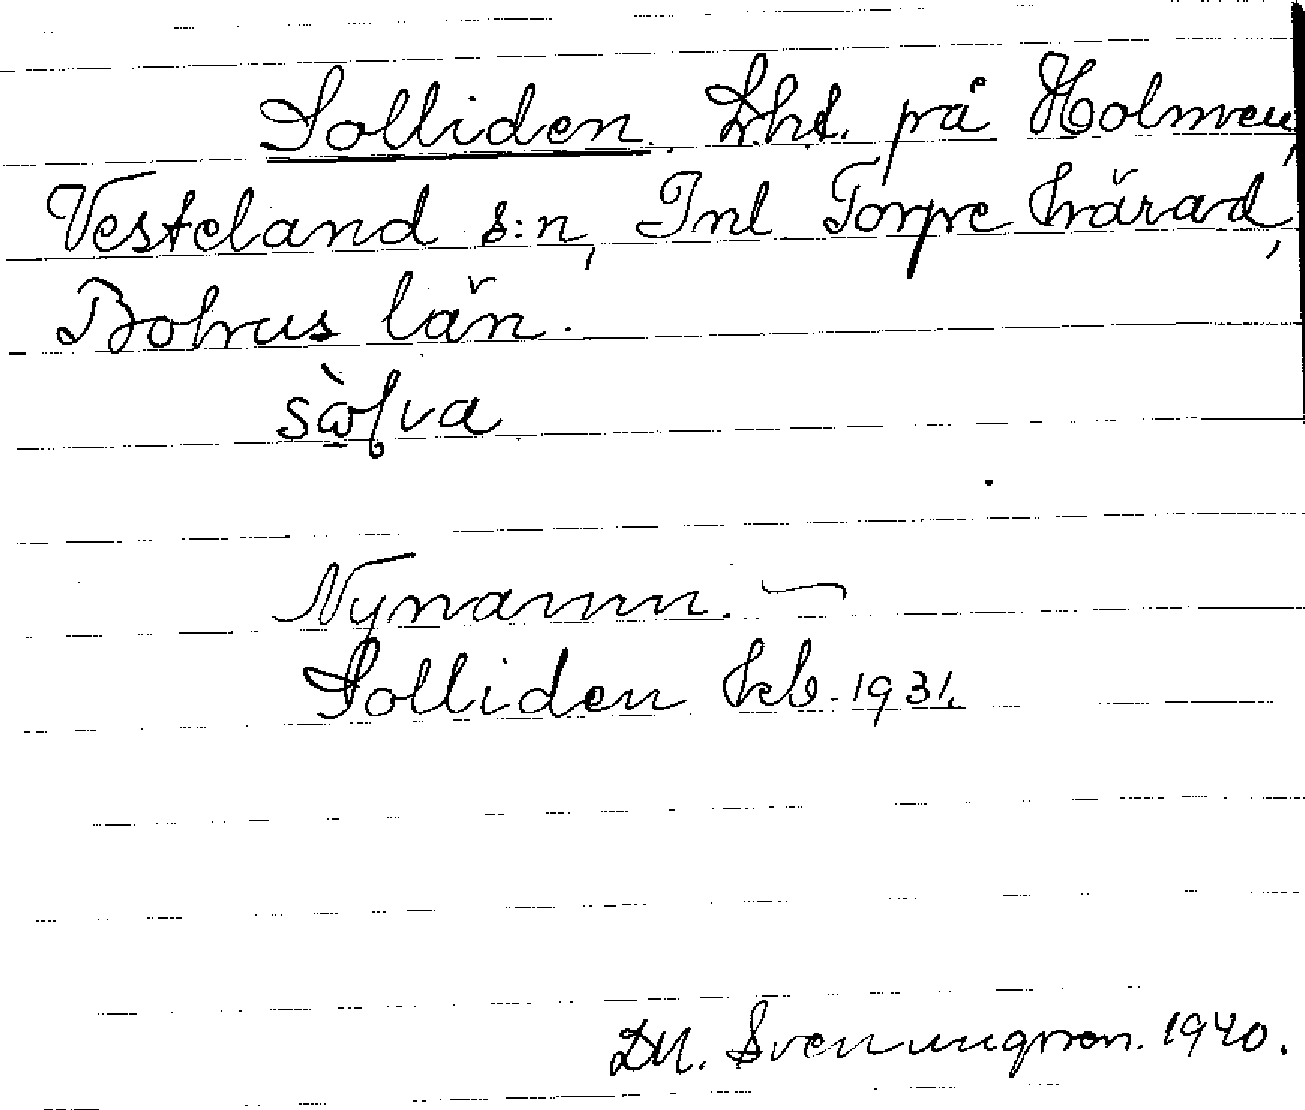 Solliden. Lht. på Holmen,
Vesteland s:n, Inl Torpe härad,
Bohus län.
Nynamn. —
Solliden kb. 1931.
DM. Svenungsson. 1940.